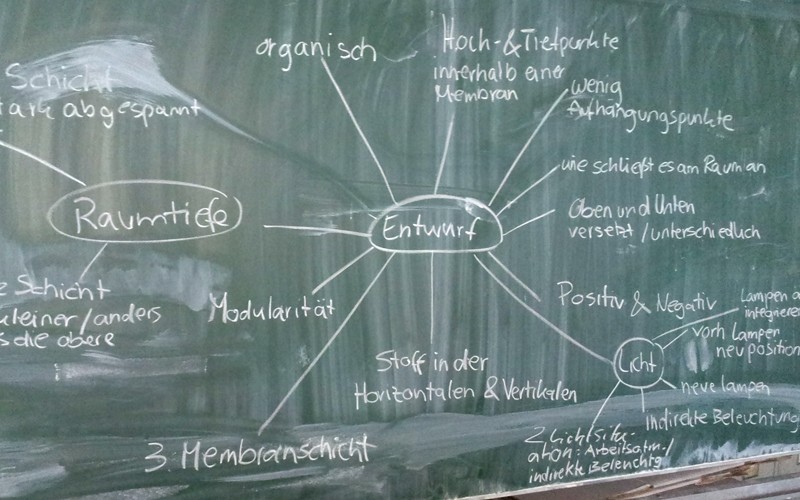 organisch
Hoch- & Tiefpunkte
innerhalb einer
Membran
wenig
Aufhängungspunkte
wie schließt es am Raum an
Oben und Unten
versetzt / unterschiedlich
Schicht
abgespannt
Raumtiefe
Entwurf
Schicht
kleiner / anders
die obere
Modularität
Positiv & Negativ
Lampen
integrieren
vorh Lampen
neu position
Licht
neue lampen
indirekte Beleuchtung
Stoff in der
Horizontalen & Vertikalen
3. Membranschicht
2 Lichtsitu-
ation: Arbeitsatm. /
indirekte Beleuchtg